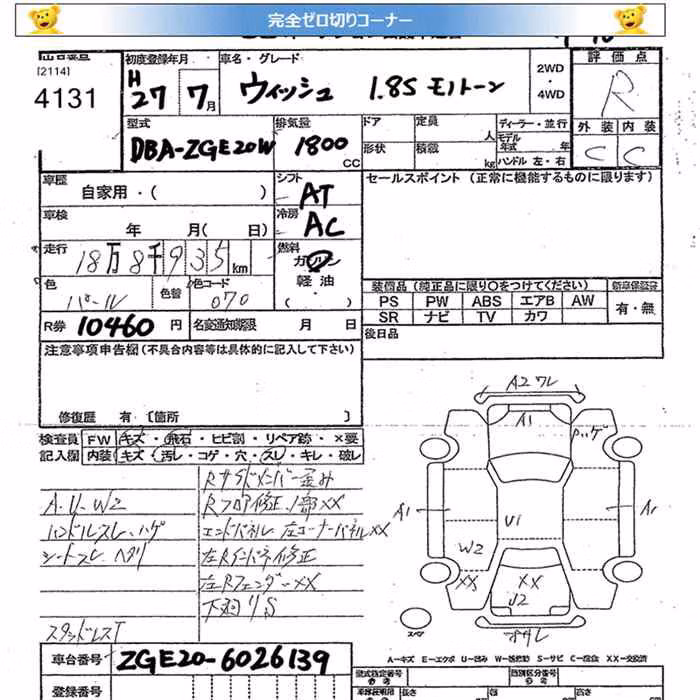 完全ゼロ切りコーナー
出品番号
[2114]
4131
初度登録年月
H
27 7月
車名・グレード
ウィッシュ 1.8S モノトーン
2WD
・
4WD
評価点
R
外装 内装
C C
型式
DBA-ZGE20W
排気量
1800
CC
ドア
形状
定員
人
積載
kg
ディーラー・並行
モデル
年式 年
ハンドル 左・右
車歴
自家用・( )
シフト
AT
セールスポイント (正常に機能するものに限ります)
車検
年 月( 日)
冷房
AC
走行
18万8千935km
燃料
ガソリン
軽油
( )
色
パール
色替
色コード
070
装備品(純正品に限り○をつけてください)
新車保証書
PS PW ABS エアB AW
SR ナビ TV カワ
有・無
R券 10460円
名変通知期限 月 日
後日品
注意事項申告欄(不具合内容等は具体的に記入して下さい)
修復歴 有 〔箇所 〕
検査員 FW キズ・飛石・ヒビ割・リペア跡・×要
記入欄 内装 キズ・汚レ・コゲ・穴・スレ・キレ・破レ
A.U.W2
ハンドルスレ.ハゲ
シートスレ ヘタリ
スタッドレスT
Rサイドメンバー歪み
Rフロア修正.1部XX
エンドパネル 左コーナーパネルXX
左Rインパネ修正
左RフェンダーXX
下廻りS
A2 ワレ
A1
ハゲ
A1
U1
A1
W2
XX
XX
U2
スペア
車台番号 ZGE20-6026139
登録番号
A-キズ E-エクボ U-凹み W-補修跡 S-サビ C-腐食 XX-交換済
型式指定番号
参考
類別区分番号
参考